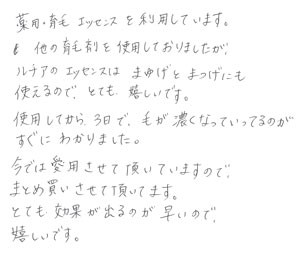 薬用・育毛 エッセンスを利用しています。
他の育毛剤を使用しておりましたが、
ルチアの エッセンスは まゆげと まつげにも
使えるので、とても 嬉しいです。
使用してから 3日で、毛が 濃くなっていってるのが
すぐに わかりました。
今では愛用させて頂いていますので、
まとめ買いさせて頂いてます。
とても 効果が出るのが 早いので、
嬉しいです。